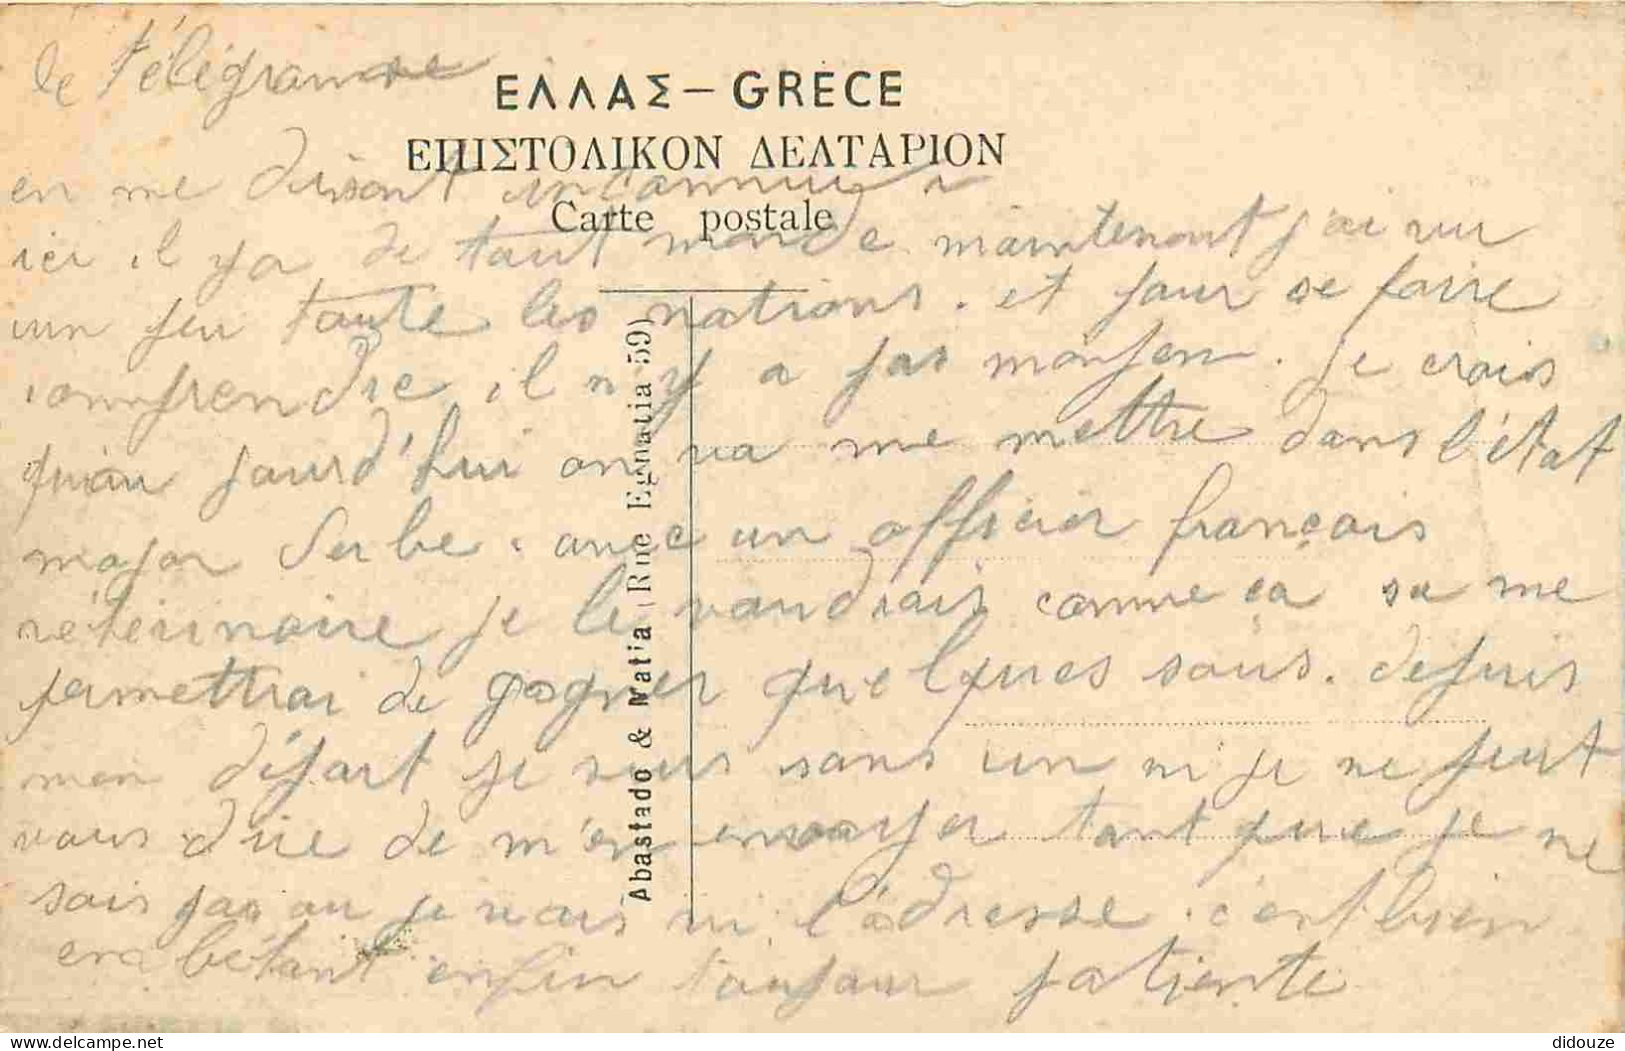 le Télégramme
ΕΛΛΑΣ – GRÈCE
ΕΠΙΣΤΟΛΙΚΟΝ ΔΕΛΤΑΡΙΟΝ
en me disant inconnu
Carte postale
ici il y a de tout monde maintenant j'ai vu
un peu toute les nations. et pour se faire
comprendre il n'y a pas moyen. Je crois
qu'au jourd'hui on va me mettre dans l'état
major Serbe. avec un officier français
véterinaire je le voudrais comme ça sa me
permettrai de gagner quelques sous. depuis
mon départ je suis sans un ni je ne peut
vous dire de m'en envoyer tant que je ne
sais pas ou je vais ni l'adresse. c'est bien
embêtant enfin toujour patiente
Abastado & Matia (Rue Egnatia 59)
didouze